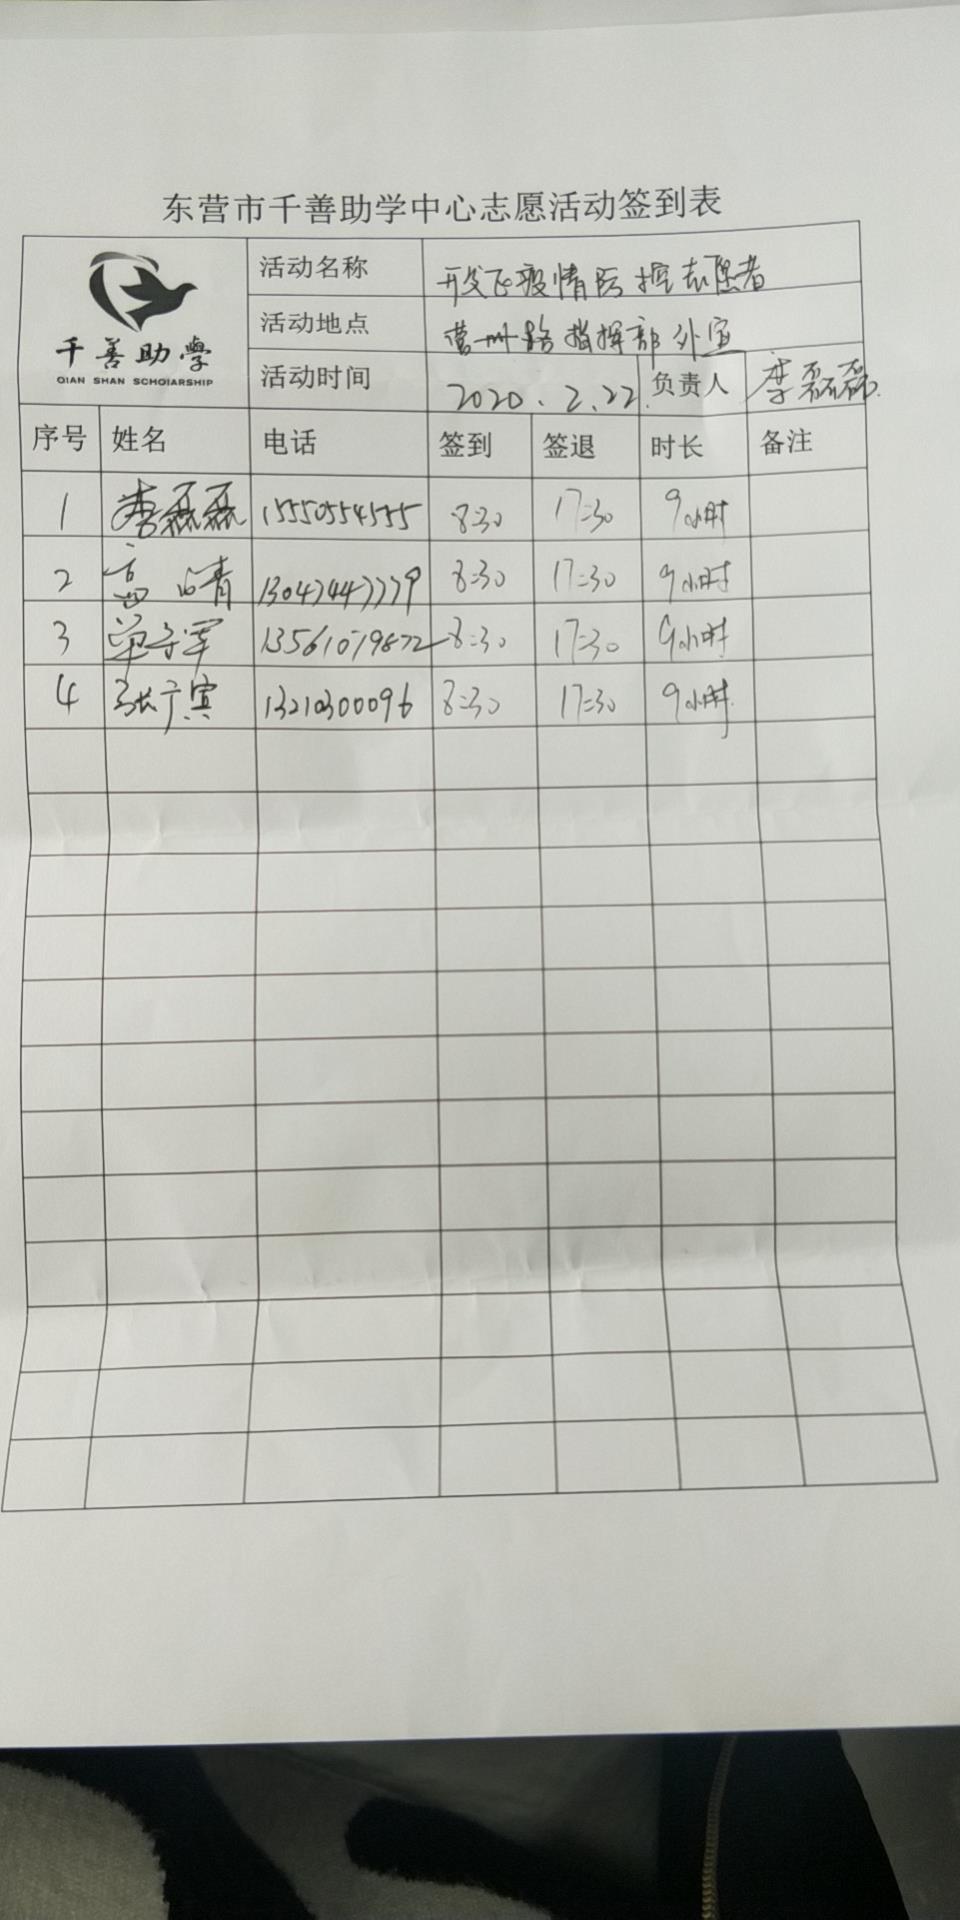 东营市千善助学中心志愿活动签到表
千善助学
QIAN SHAN SCHOIARSHIP
活动名称 开发区疫情防控志愿者
活动地点 营州路指挥部外宣
活动时间 2020.2.22. 负责人 李磊磊
序号 姓名 电话 签到 签退 时长 备注
1 李磊磊 15550554555 8:30 17:30 9小时
2 8:30 17:30 9小时
3 单子军 8:30 17:30 9小时
4 张广宾 13210300096 8:30 17:30 9小时